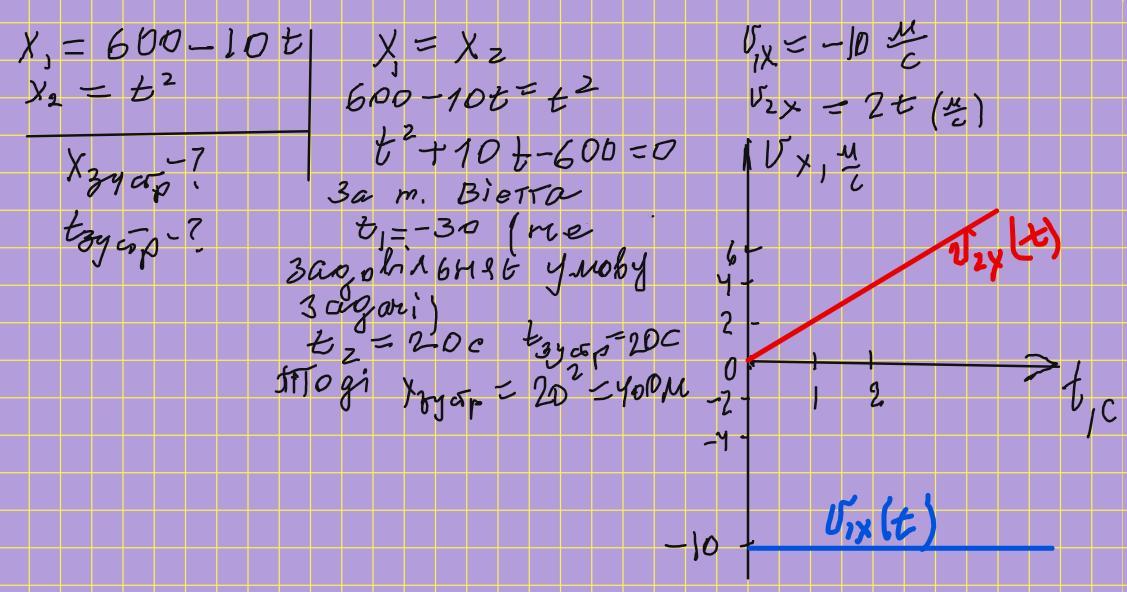 x₁ = 600 - 10 t
x₂ = t²
xзустр - ?
tзустр - ?
x₁ = x₂
600 - 10t = t²
t² + 10 t - 600 = 0
За т. Вієтта
t₁ = -30 (не
задовільняє умову
задачі)
t₂ = 20 с tзустр = 20 с
тоді xзустр = 20² = 400 м
υ₁ₓ = -10 м/с
υ₂ₓ = 2 t (м/с)
υₓ, м/с
6
4
2
0
-2
-4
-10
1 2
t, с
υ₂ₓ(t)
υ₁ₓ(t)